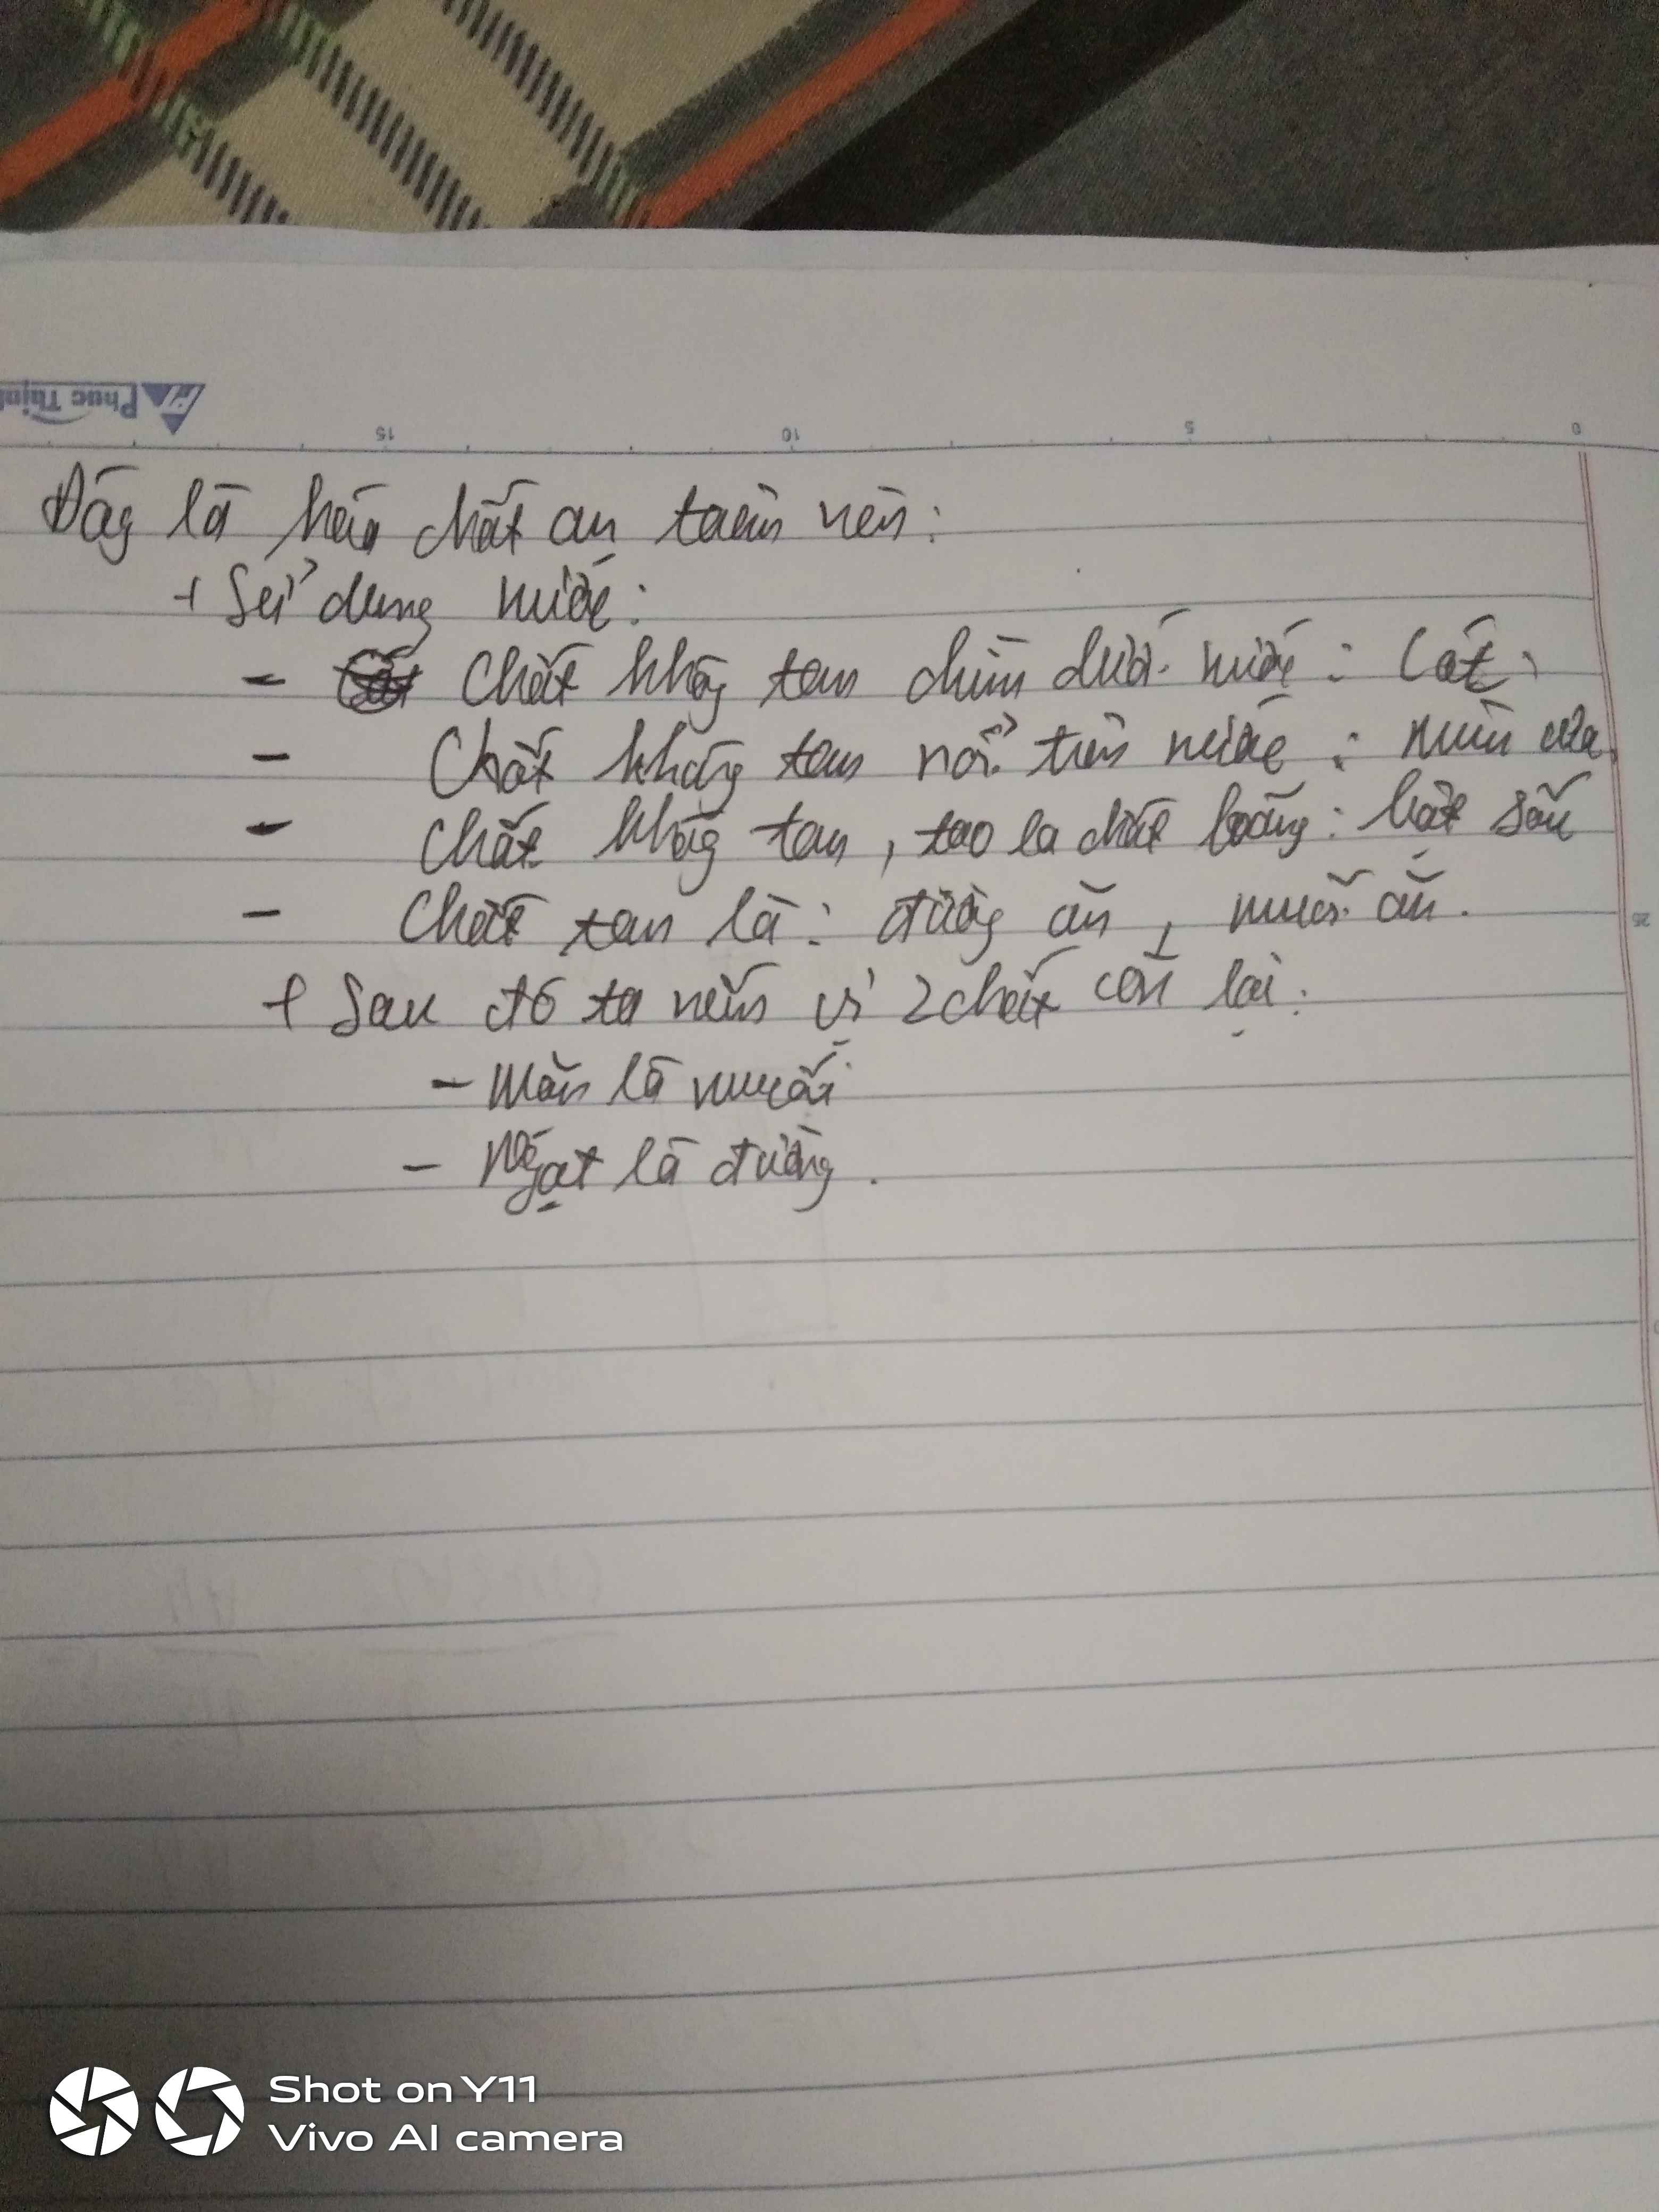 Phúc Thịnh
15 10 5 0
Đây là hóa chất an toàn nên:
+ Sử dụng nước:
- Chất không tan chìm dưới nước: Cát.
- Chất không tan nổi trên nước: mùn cưa.
- Chất không tan, tạo la chất loãng: bột sắn
- Chất tan là: đường ăn, muối ăn.
+ Sau đó ta nếm vị 2 chất còn lại:
- Mặn là muối
- Ngọt là đường.
25
Shot on Y11
Vivo AI camera